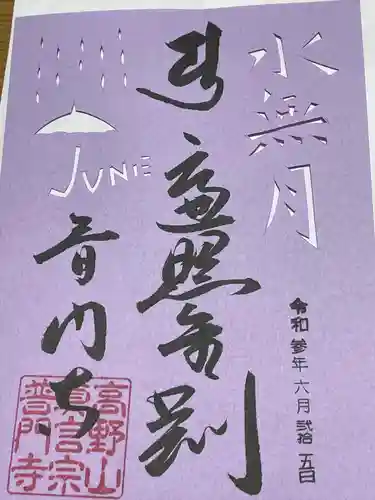 水無月
JUNE
遍照金剛
令和参年六月弐拾五日
普門寺
高野山
真言宗
普門寺